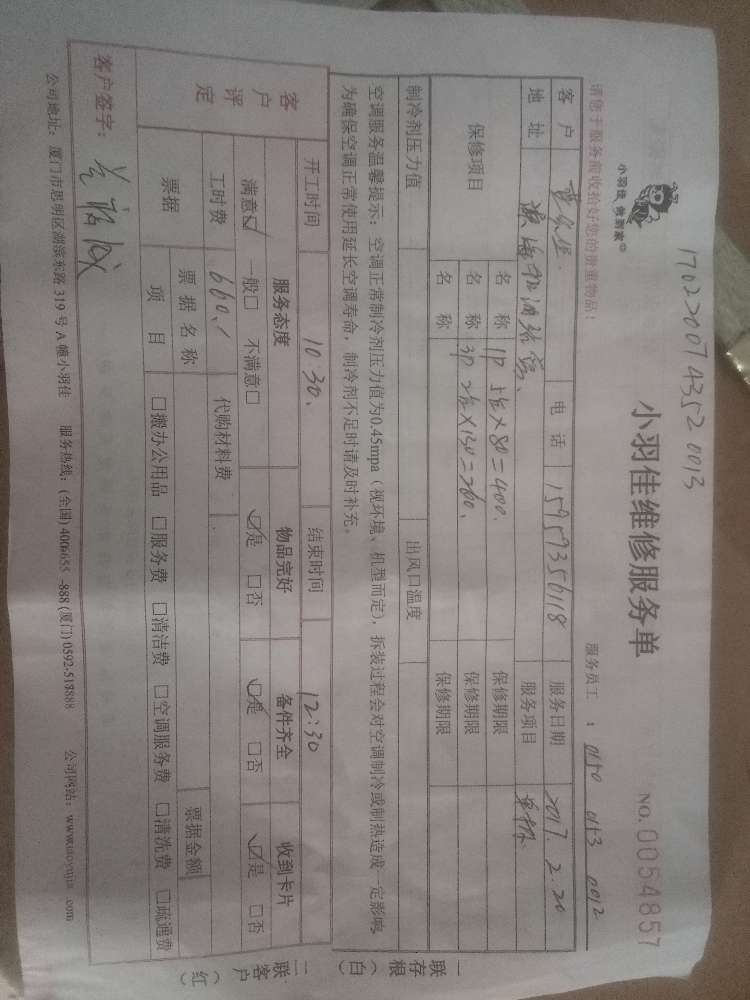 1702200743520013
小羽佳 您到家
小羽佳维修服务单
NO. 0054857
请您于服务前收拾好您的贵重物品!
服务员工 : 0150 0113 0012
客户 电话 15959356118 服务日期 2017.2.20
地址 服务项目
保修项目 名称 1P 5台×80=400. 保修期限
名称 3P 2台×130=260. 保修期限
名称 保修期限
制冷剂压力值 出风口温度
空调服务温馨提示: 空调正常制冷剂压力值为0.45mpa(视环境、机型而定), 拆装过程会对空调制冷或制热造成一定影响,
为确保空调正常使用延长空调寿命, 制冷剂不足时请及时补充。
开工时间 10:30. 结束时间 12:30
客户评定 服务态度 物品完好 备件齐全 收到卡片
满意☑ 一般□ 不满意□ ☑是 □否 ☑是 □否 ☑是 □否
工时费 660.1 代购材料费
票据 票据名称 票据金额
项目 □搬办公用品 □服务费 □清洁费 □空调服务费 □清洗费 □疏通费
客户签字:
公司地址: 厦门市思明区湖滨东路319号A幢小羽佳 服务热线: (全国) (厦门) 公司网站:
一存根(白)
二客户(红)
联
联